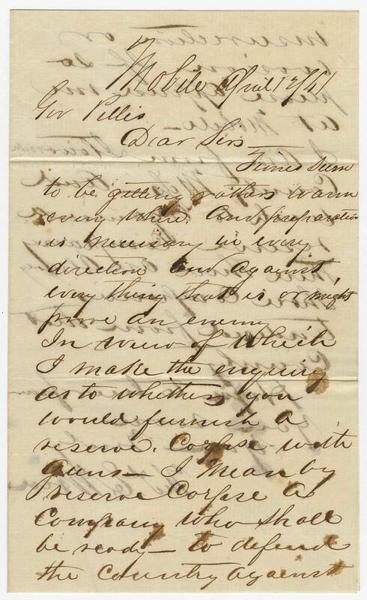 Mobile April 17/61
Gov Pettis
Dear Sir
Times Seem
to be getting rather warm
every where. And preparation
is necessary in every
direction and against
every thing that is or might
prove an enemy
In view of which
I make the enquiry
as to whether you
would furnish a
reserve. Corpse with
Guns — I mean by
reserve Corpse a
Company who shall
be ready — to defend
the Country against